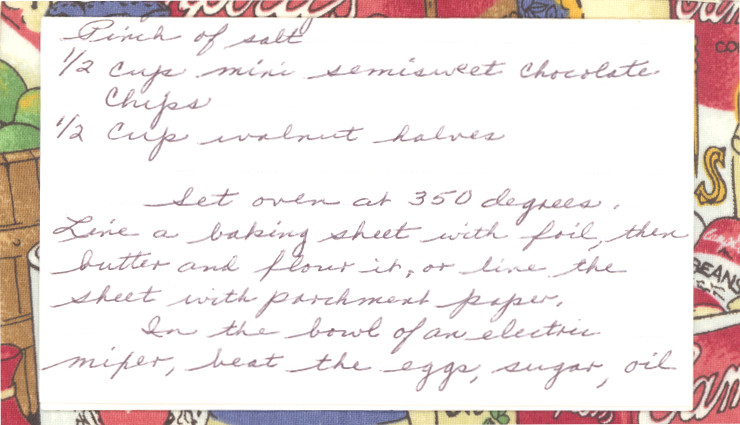 Pinch of salt
1/2 cup mini semisweet chocolate
chips
1/2 cup walnut halves
Set oven at 350 degrees.
Line a baking sheet with foil, then
butter and flour it, or line the
sheet with parchment paper.
In the bowl of an electric
mixer, beat the eggs, sugar, oil
BEANS